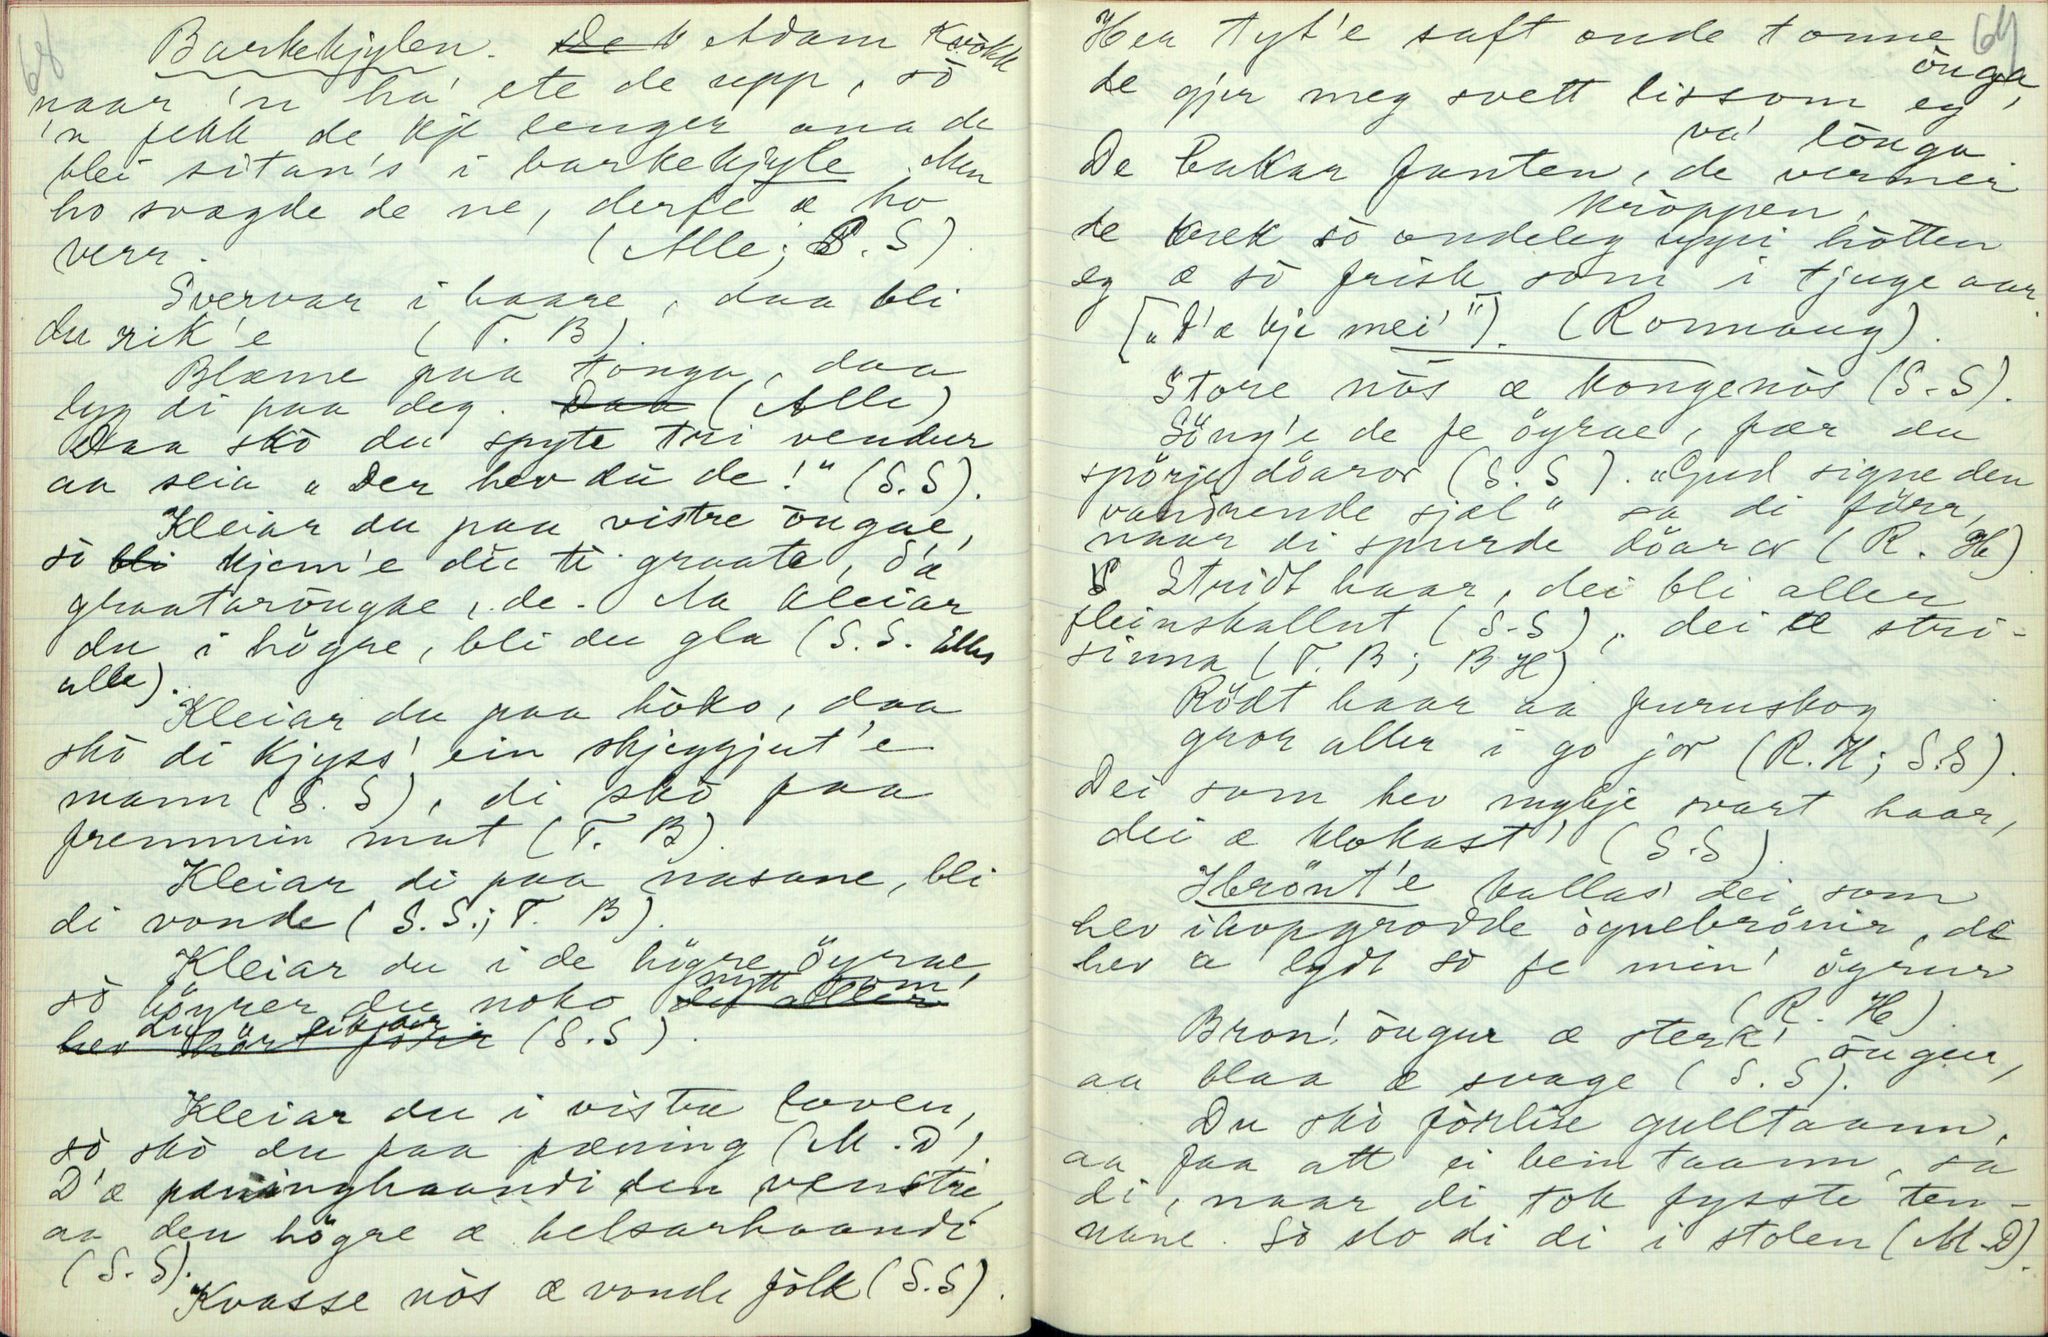 68
Barkekjylen. De V Adam Krökk
naar 'n ha' ete de upp, so
'n fekk de kje lenger ona de
blei sitan's i barkekjyle. Men
ho svægde de ne, derfe æ ho
verr. (Alle; S.S).
Svervar i haare, daa bli
du rik'e (T. B).
Blæme paa tonga, daa
lyg di paa deg. Daa (Alle)
Daa skò du spyte tri vendur
aa seia „Der hev du de!" (S.S).
Kleiar du paa vistre ougae,
sò bli kjem'e du ti graate, d'æ
graatarougae, de. Aa kleiar
du i högre, bli du gla (S.S. Elles
alle).
Kleiar du paa höko, daa
skò di kjyss' ein skjeggjut'e
mann (S.S), di skò faa
fremmin mat (T. B).
Kleiar di paa nasane, bli
di vonde (S.S.; T. B).
Kleiar du i de högre öyrae
sò höyrer du noko nytt som,
hev (S.S).
Kleiar du i vistra loven,
sò skò du faa pæning (M.D).
D'æ pæninghaandi den venstre,
aa den högre æ helsarhaandi
(S.S).
Kvasse nös æ vonde fölk (S.S).
64
Her tyt'e saft onde tonne
de gjer meg svett lissom eg óuga,
va' lòuga.
De bakar fanten, de vermer
kròppen,
de trek sò ondeleg uppi hòtten
eg æ sò frisk som i tjuge aar.
[„D'æ kje mei'"]. (Ronnaug).
Store nös æ kongenös (S.S).
Söng'e de fe öyrae, fær du
spörje döaror (S.S). „Gud signe den
vandrende sjæl" sa di förr,
naar di spurde döaror (R. H)
Stridt haar, dei bli aller
fleinskallut (S.S), dei æ stri-
sinna (T. B; B H)
Rödt haar aa furuskog
gror aller i go jor (R.H; S.S).
Dei som hev mykje svart haar,
dei æ klokast' (S.S).
Ibrönt'e kallas' dei, som
hev ihopgrodde ògnebrönir, de
hev æ lydt sò fe min' öyrur
(R. H).
Bron' òugur æ sterk' òugur,
aa blaa æ svage (S.S).
Du skò förlise gulltaann,
aa faa att ei bein taann, sa
di, naar di tok fysste ten-
nane. Sò slo di di i stolen (M.D).